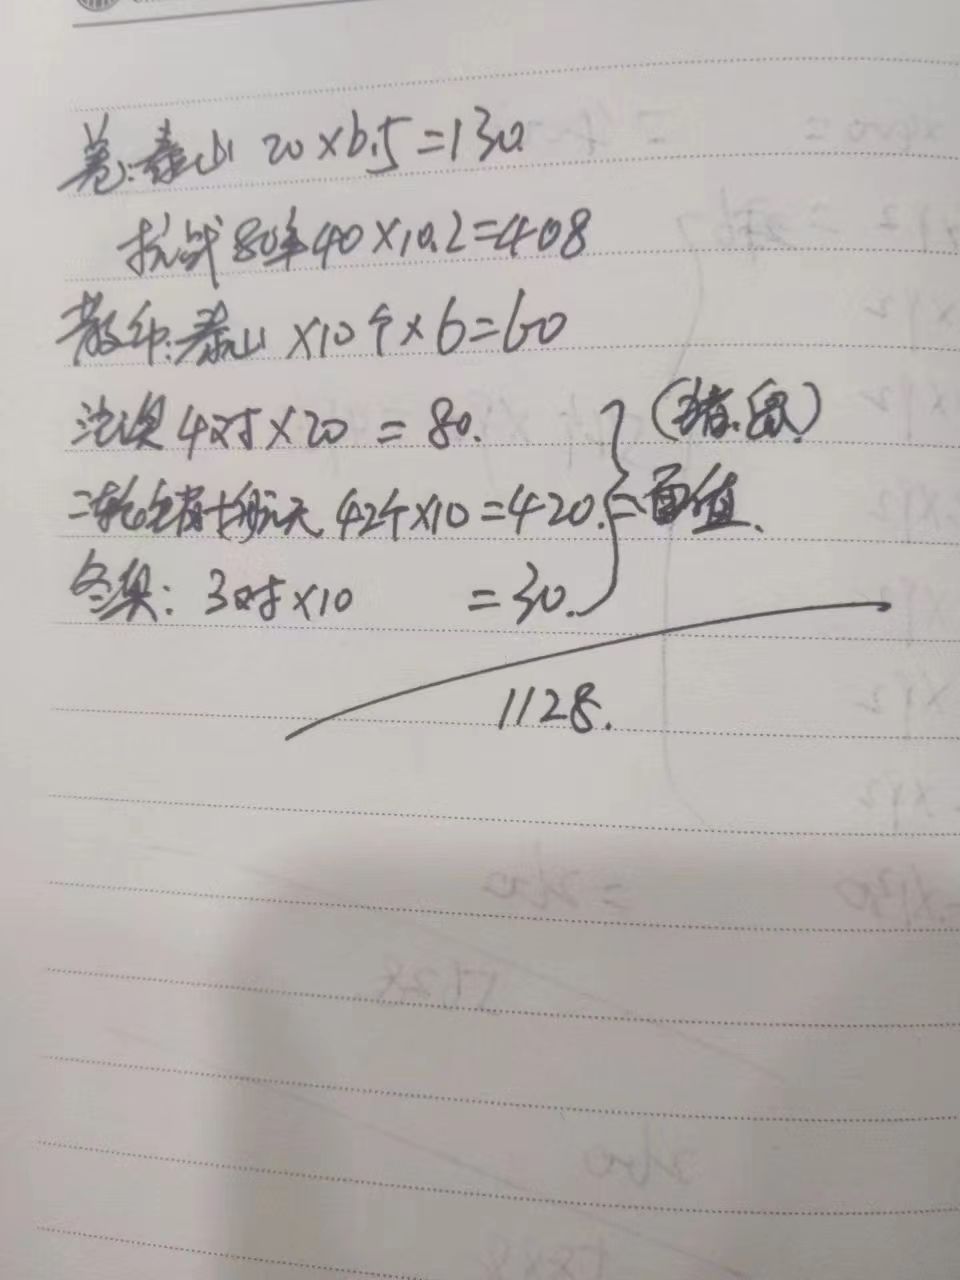 卷:泰山 20×6.5=130.
抗战80年40×10.2=408
散币:泰山×10个×6=60
4对×20=80.
二轮猪+航天 42个×10=420.=面值.
冬奥:3对×10=30.
1128.